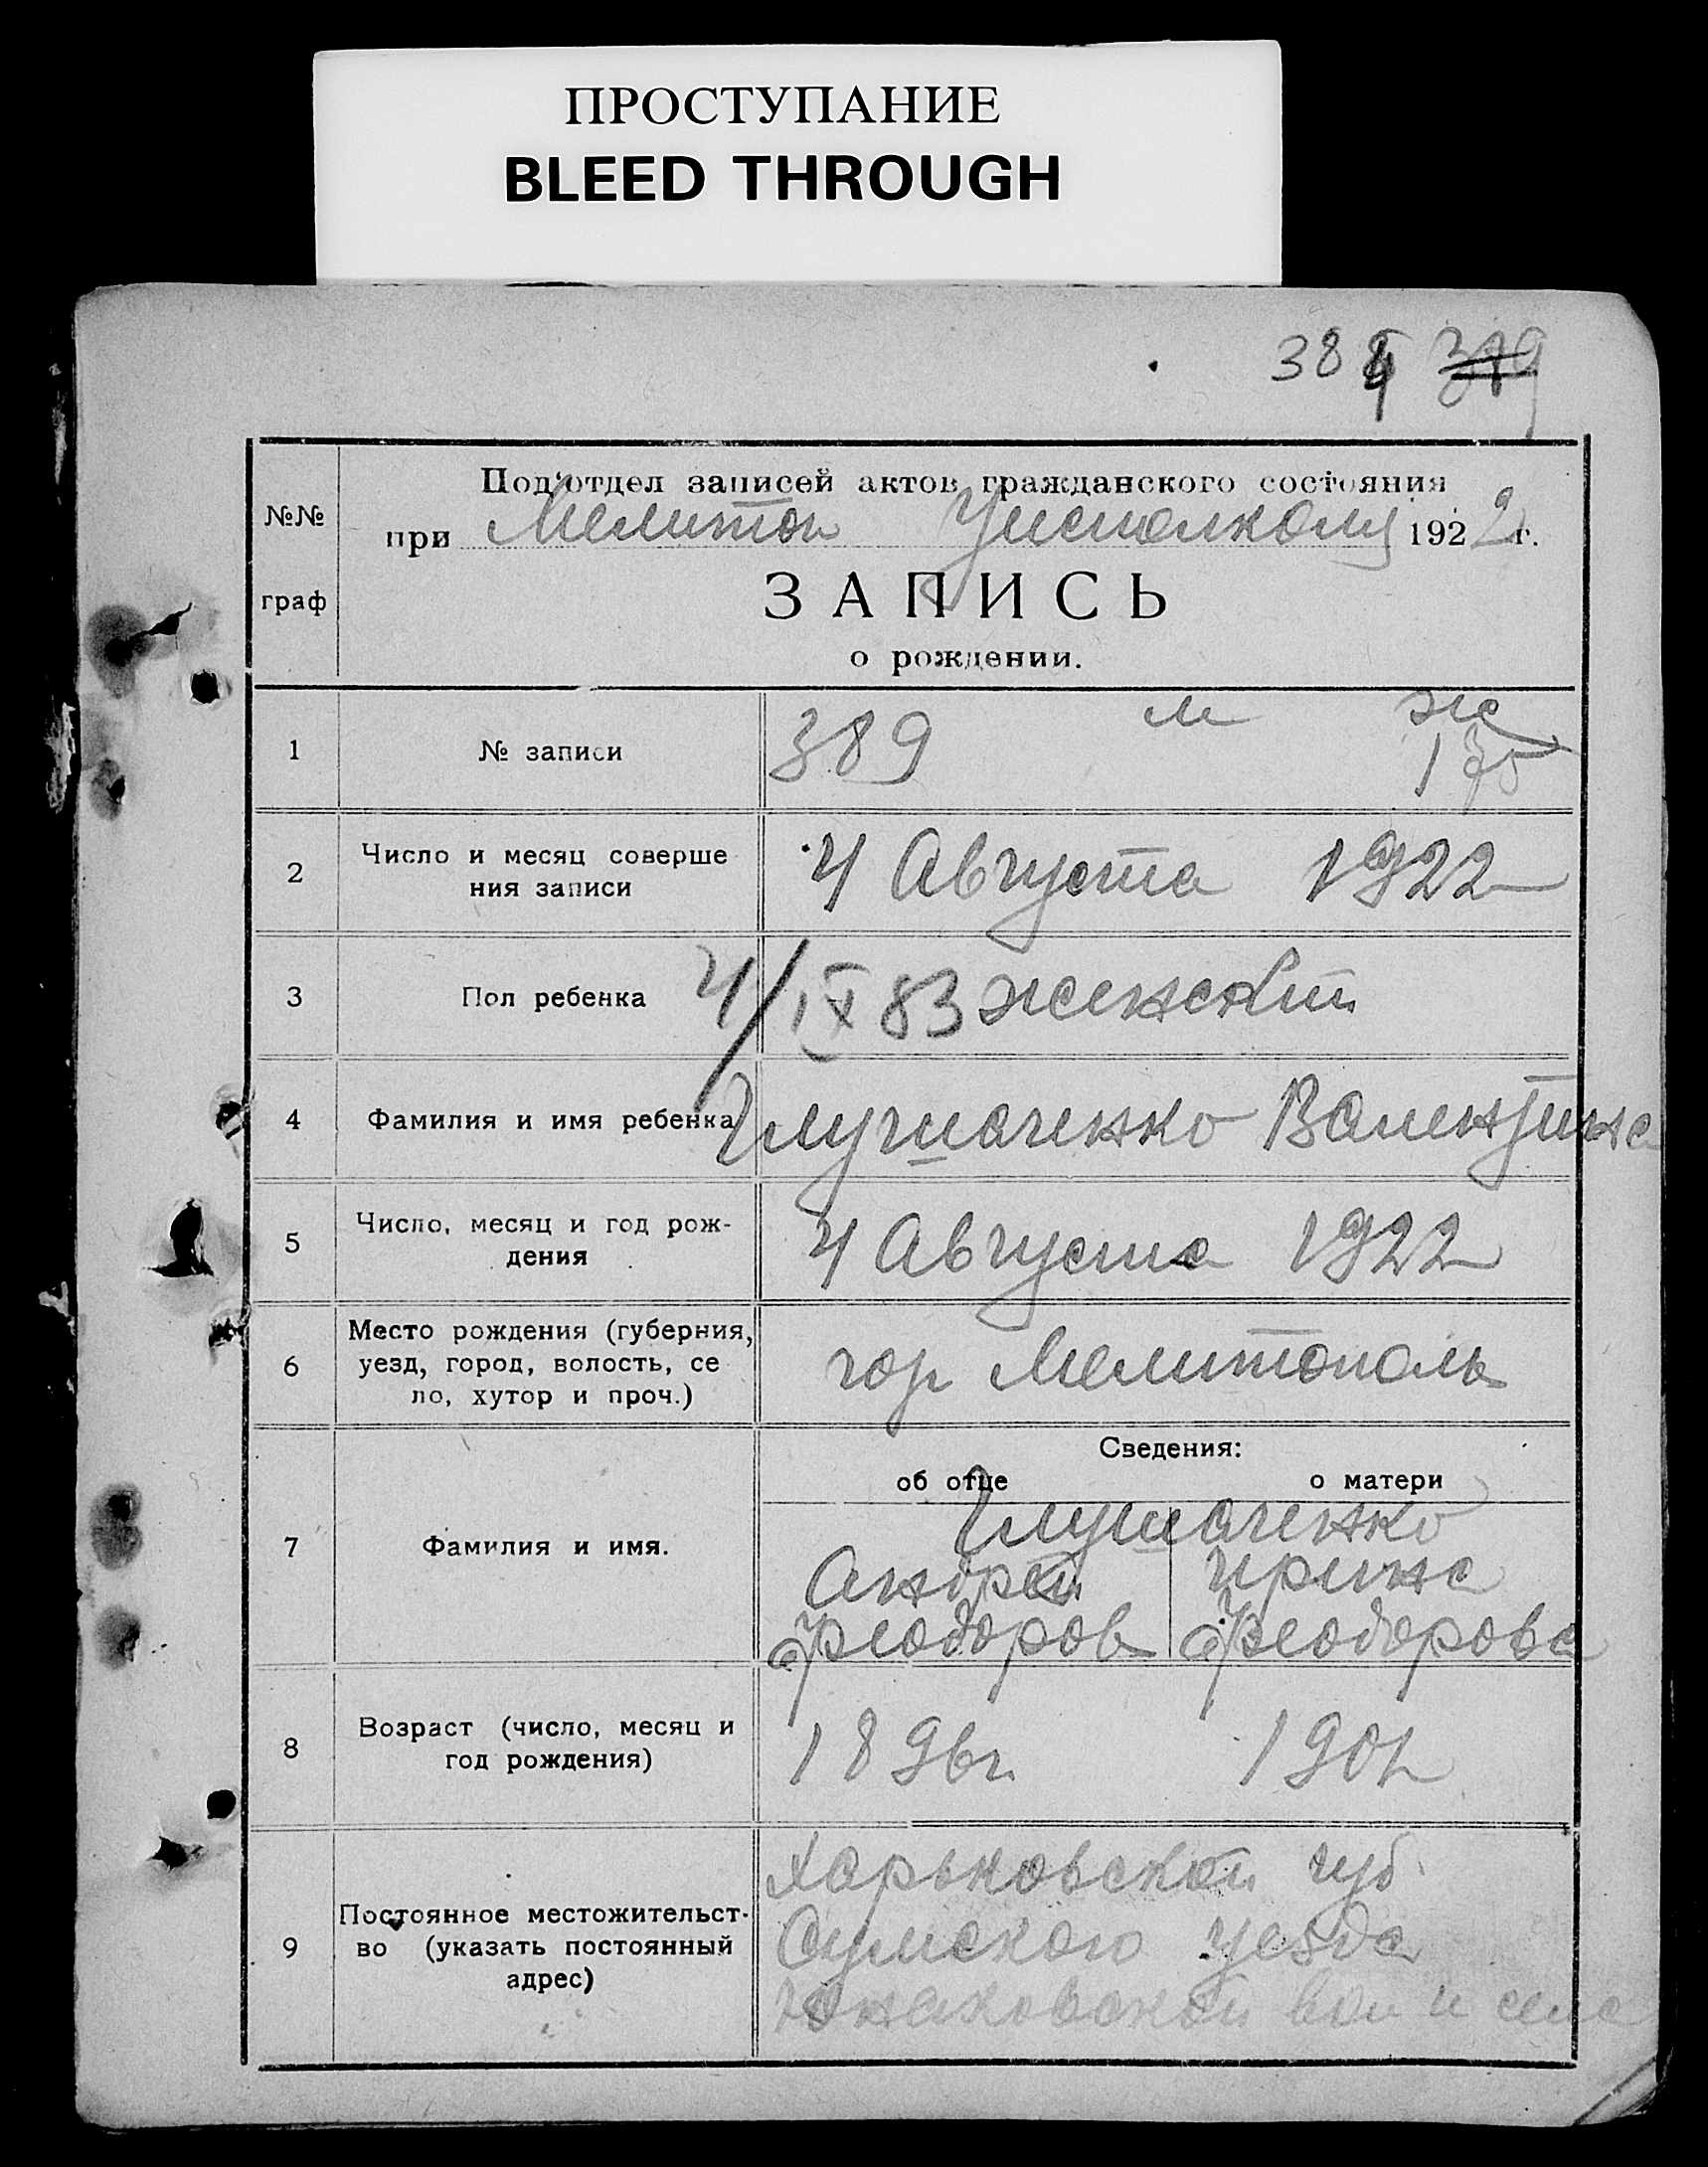 ПРОСТУПАНИЕ
BLEED THROUGH
384 379
Подотдел записей актов гражданского состояния
№№ граф
при Мелитоп Уисполкому 1922 г.
ЗАПИСЬ
о рождении.
м ж
1 № записи 389 170
2 Число и месяц соверше
ния записи
4 Августа 1922
3 Пол ребенка 4/IX 83 женский
4 Фамилия и имя ребенка Глушаченко Валентина
5 Число, месяц и год рож-
дения
4 Августа 1922
6 Место рождения (губерния,
уезд, город, волость, се
ло, хутор и проч.)
гор Мелитополь
Сведения:
об отце о матери
7 Фамилия и имя.
Глушаченко
Андрей Ирина
Феодоров Феодорова
8 Возраст (число, месяц и
год рождения)
1896г 1901
9 Постоянное местожительст-
во (указать постоянный
адрес)
Харьковской губ.
Сумского уезда
Юнаковской вол и села